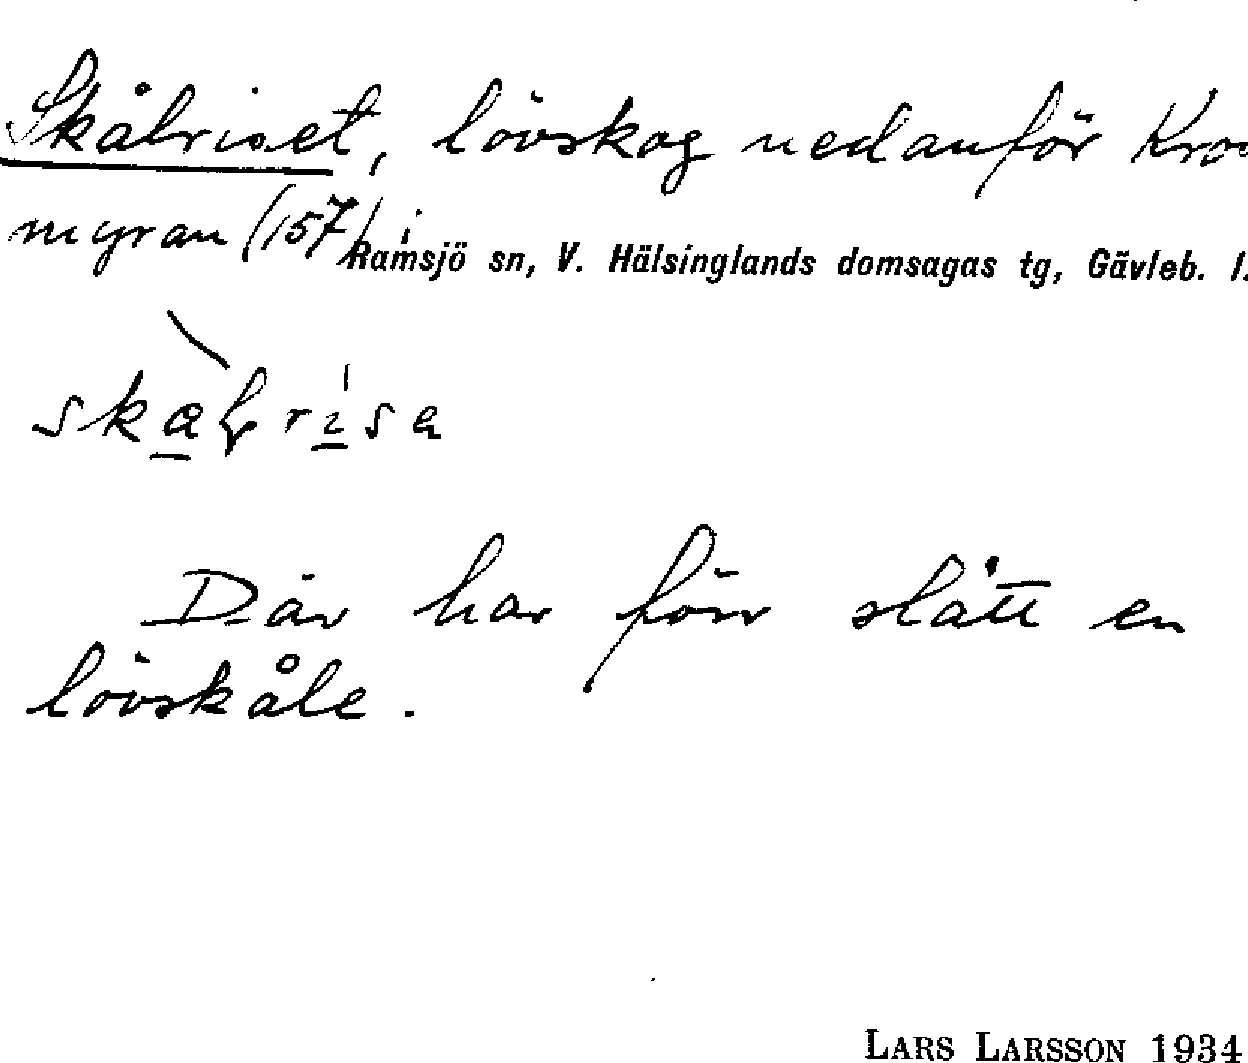 Skålriset, lövskog nedanför Kro
myran (157) i
Ramsjö sn, V. Hälsinglands domsagas tg, Gävleb. l.
Där har förr stått en
lövskåle.
LARS LARSSON 1934